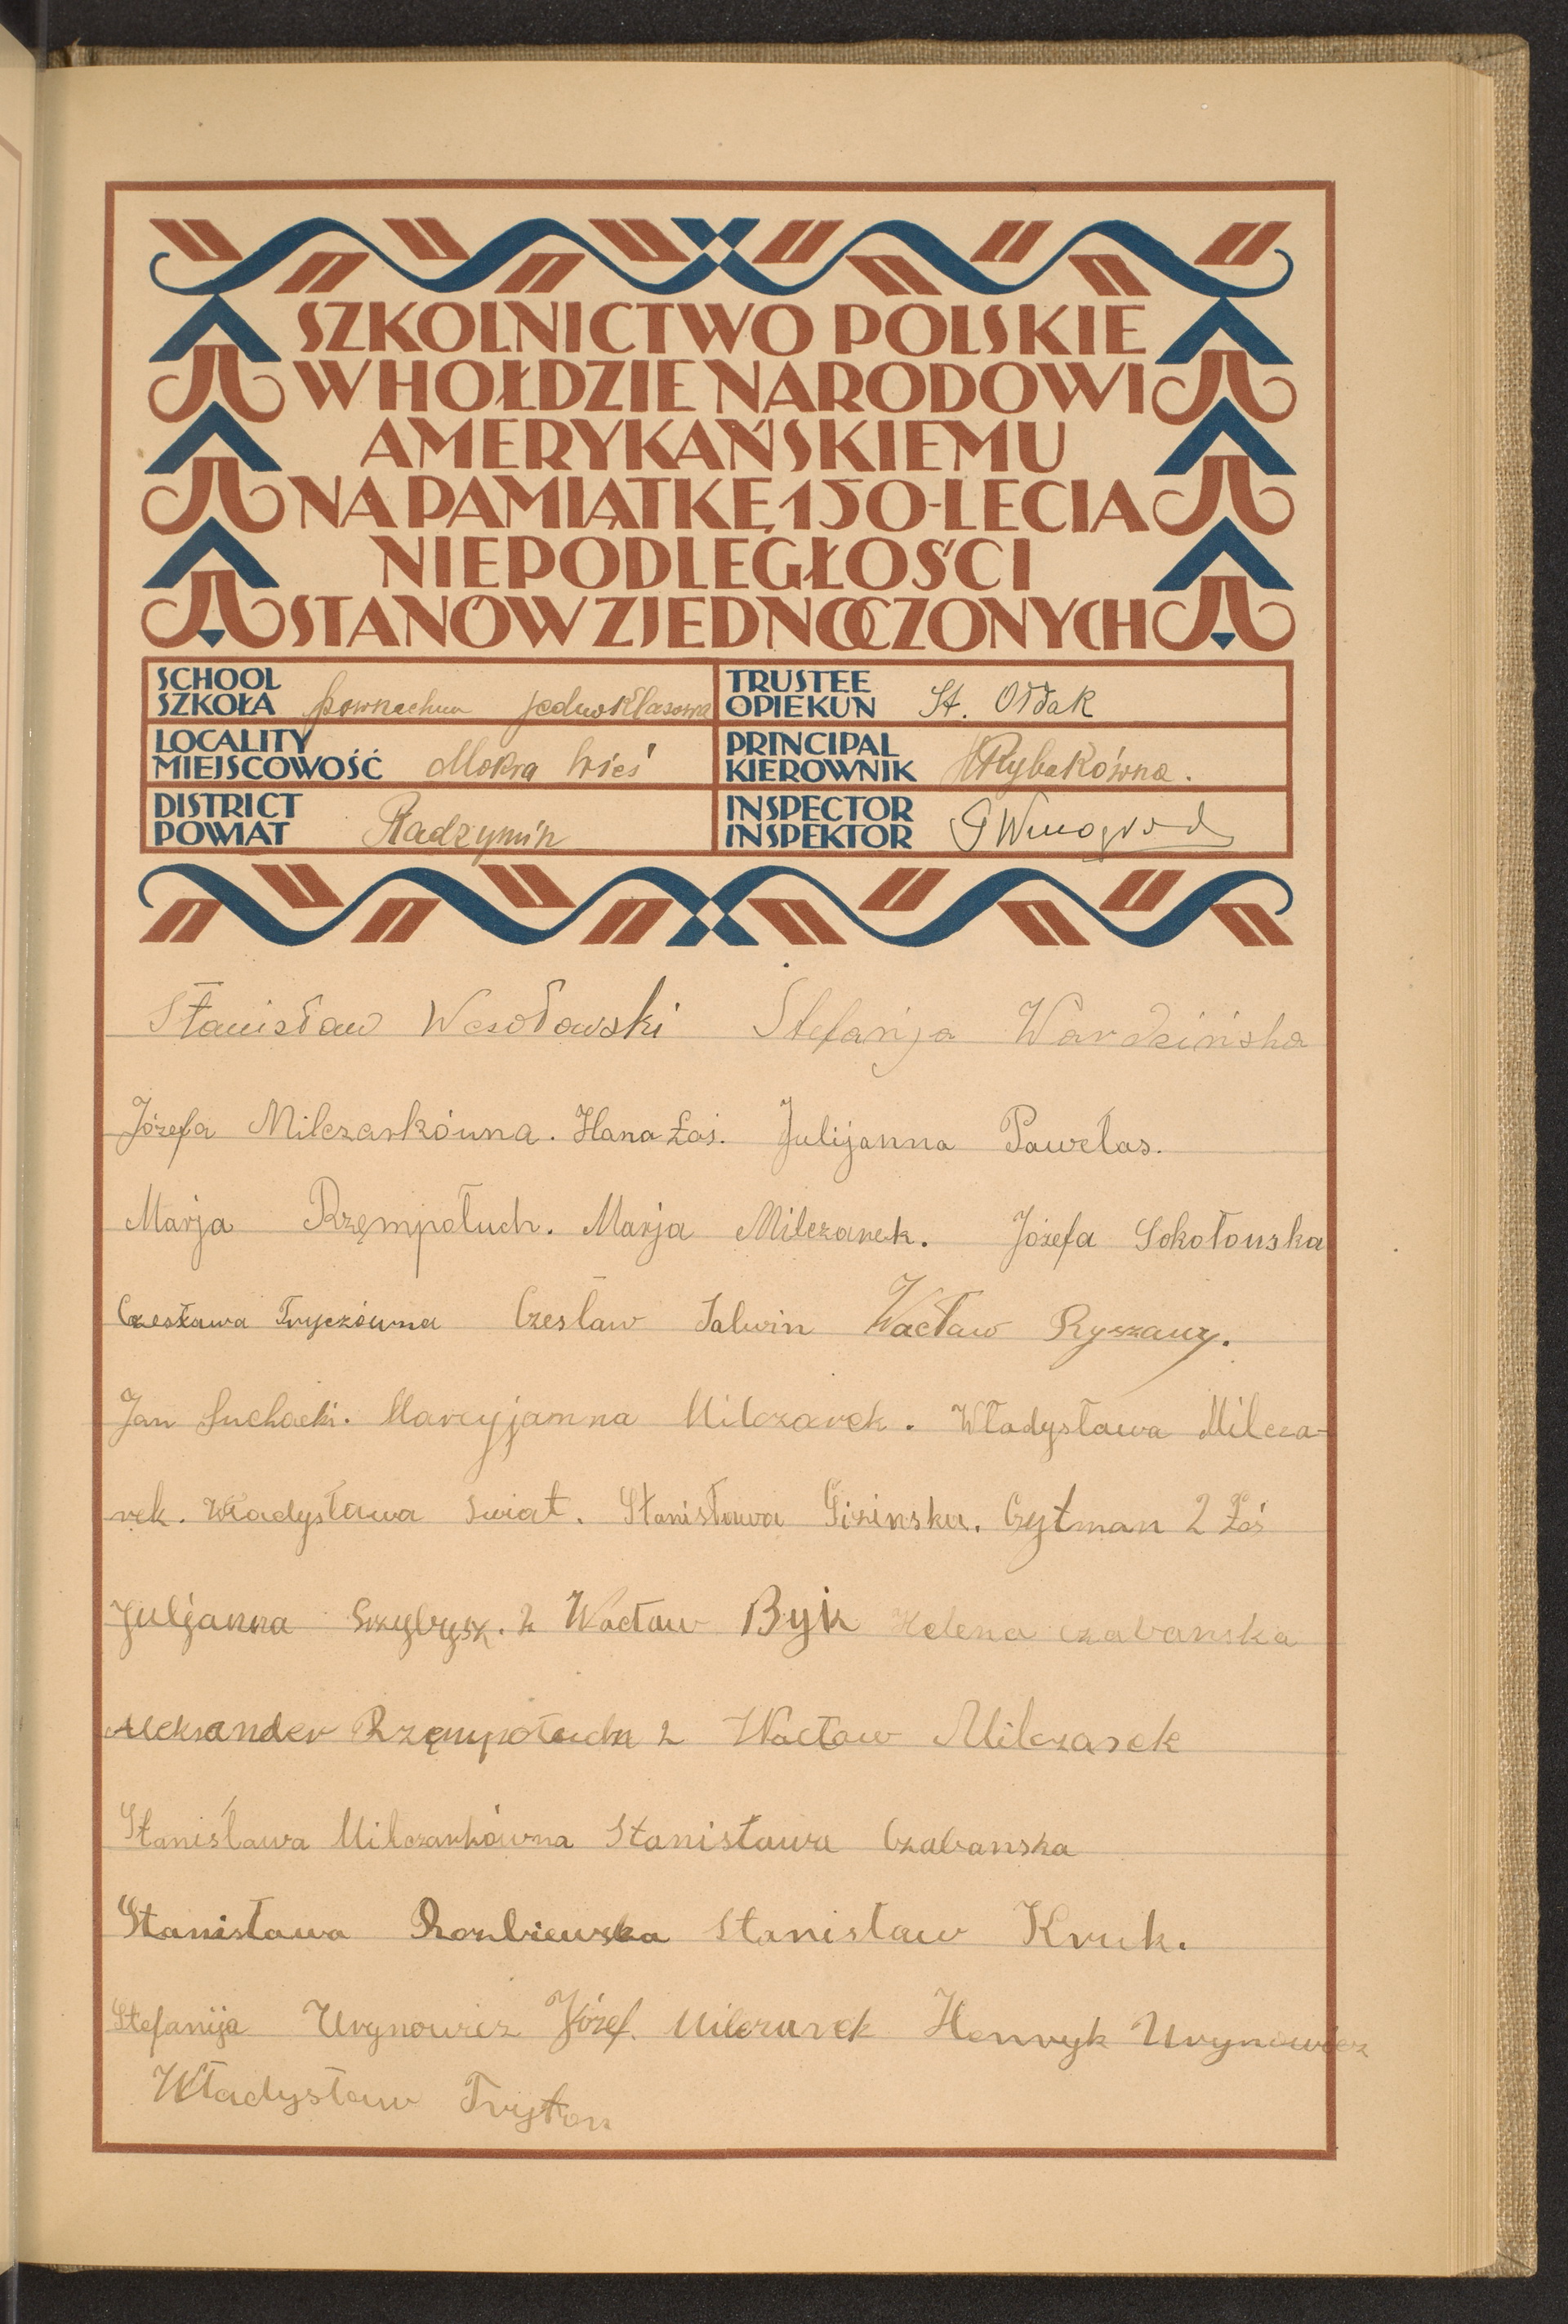 SZKOLNICTWO POLSKIE
W HOŁDZIE NARODOWI
AMERYKAŃSKIEMU
NA PAMIĄTKĘ 150-LECIA
NIEPODLEGŁOŚCI
STANÓW ZJEDNOCZONYCH
SCHOOL
SZKOŁA powszechna jednoklasowa
TRUSTEE
OPIEKUN St. Ołdak
LOCALITY
MIEJSCOWOŚĆ Mokra Wieś
PRINCIPAL
KIEROWNIK HRybakówna.
DISTRICT
POWIAT Radzymin
INSPECTOR
INSPEKTOR
Stanisław Wesołowski Stefanja Wardzińska
Józefa Milczarkówna. Hana Łoś. Julijanna Pawełas.
Marja Rzempołuch. Marja Milczarek. Józefa Sokołowska
Czesława Tryczówna Czesław Salwin Wacław Ryszawy.
Jan Suchocki. Marcyjanna Milczarek. Władysława Milcza-
rek. Władysława Swiat. Stanisława Gizinska. Cytman 2 Łoś
Juljanna 2 Wacław Byk Helena Czabanska
Aleksander Rzempołuch 2 Wacław Milczarek
Stanisława Milczarkówna Stanisława Czabanska
Stanisława Rozbiewska Stanisław Kruk.
Stefanija Urynowicz Józef. Milczarek Henryk Urynowicz
Władysław Tryton